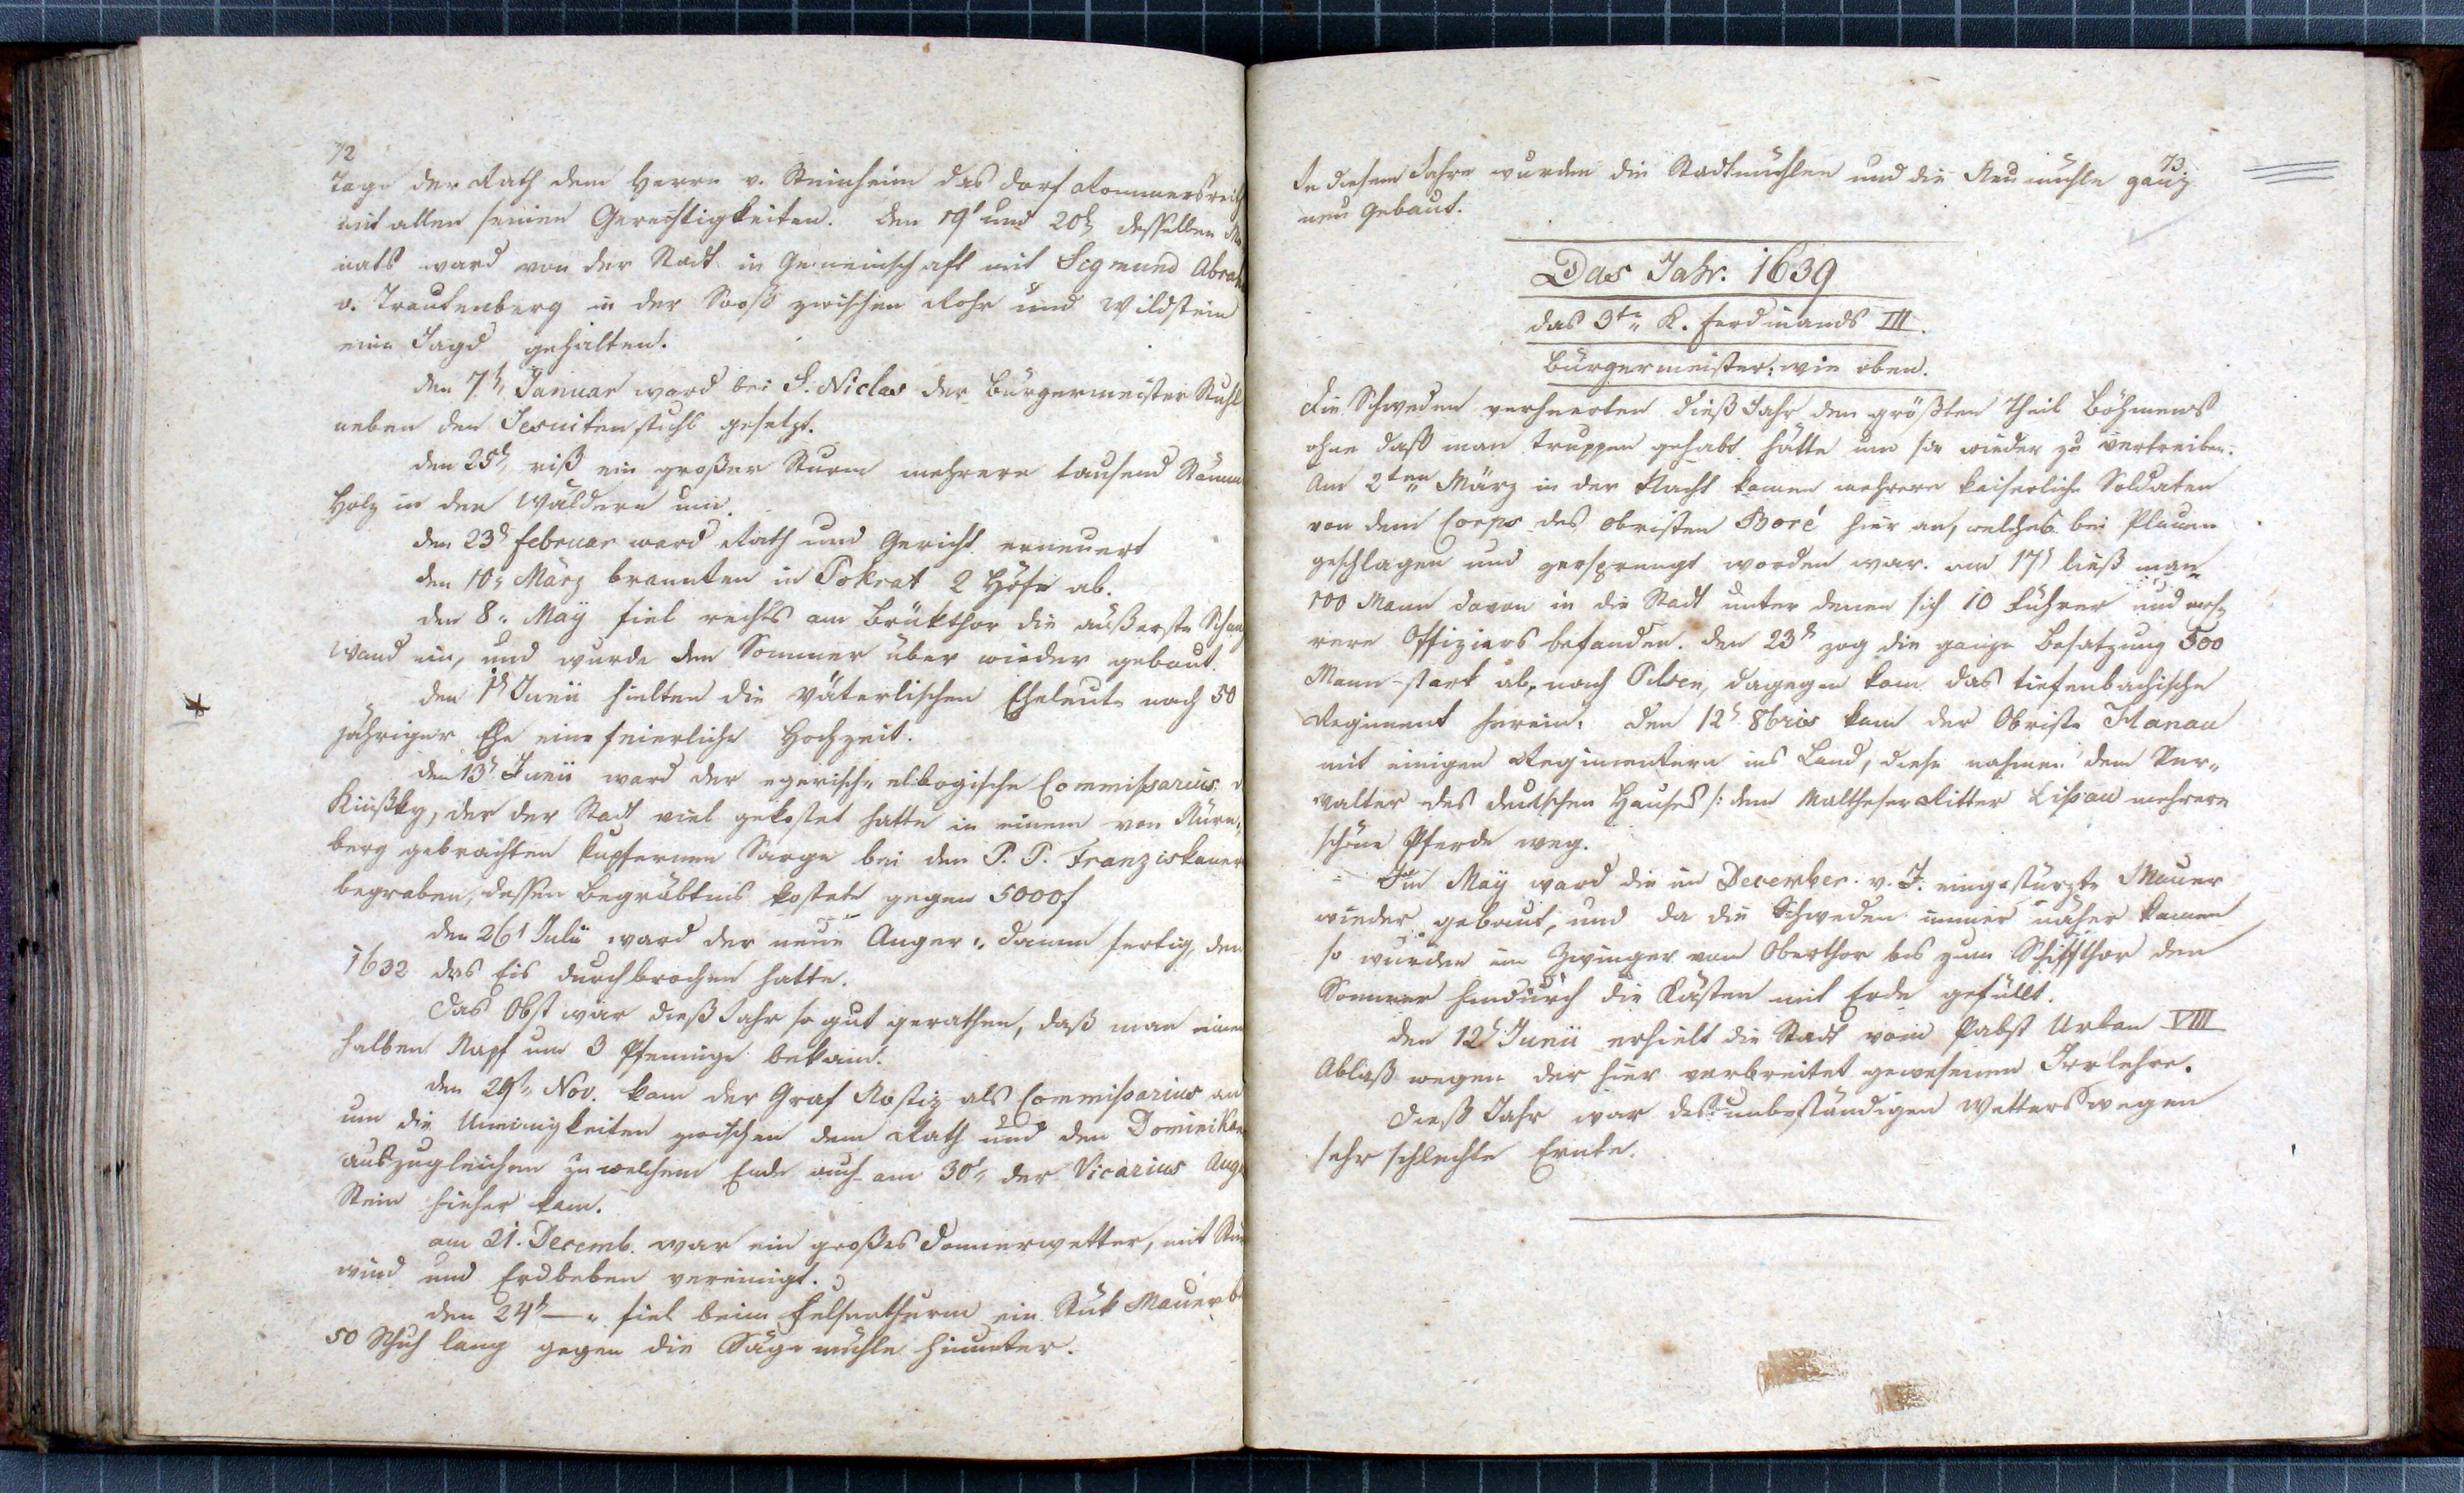 72
Tage der Rath dem Herrn v. Steinheim das Dorf Rommersreit
mit allen seinen Gerechtigkeiten. Den 19t und 20t desselben Mo
nats ward von der Stadt in Gemeinschaft mit Sigmund Abrah
v. Trautenberg in der Sooß zwischen Rohr und Wildstein
eine Jagd gehalten.
den 7t Januar ward bei S. Niclas der Bürgermeister Stuhl
neben den Jesuitenstuhl gesetzt.
den 25t riß ein großer Sturm mehrere tausend Stämme
Holz in den Wäldern um.
den 23t Februar ward Rath und Gericht erneuert
den 10t März brannten in Pokrat 2 Höfe ab.
den 8t May fiel rechts am Brükthor die äußerste
wand ein, und wurde den Sommer über wieder gebaut.
den 1t Junii hielten die Väterlischen Eheleute nach 50
jähriger Ehe eine feierliche Hochzeit.
den 13t Junii ward der egerisch-elbogische Commißarius v
Kinßky, der der Stadt viel gekostet hatte in einem von Nürn„
berg gebrachten kupfernen Sarge bei den P. P. Franziskaner
begraben, dessen Begräbtnis kostete gegen 5000f
den 26t Julii ward der neue Anger„damm fertig, den
1632 das Eis durchbrochen hatte.
Das Obst war dieß Jahr so gut gerathen, daß man einen
halben Napf um 3 Pfennige bekam.
den 29t Nov. kam der Graf Nostiz als Commißarius an
um die Uneinigkeiten zwischen dem Rath und den Dominikan
auszugleichen zu welchem Ende auch am 30t der Vicarius Aug
Stein hieher kam.
am 21. Decemb. war ein großes Donnerwetter, mit Stur
wind und Erdbeben vereinigt.
den 24t — „ fiel beim Felsenthurm ein Stük Mauer b
50 Schuh lang gegen die Sägemühle hinunter.
73.
In diesem Jahre wurden die Stadtmühlen und die Neumühle ganz
neu gebaut.
Das Jahr. 1639
das 3te K. Ferdinands III.
Bürgermeister: wie oben.
Die Schweden verheerten dieß Jahr den größten Theil Böhmens
ohne daß man Truppen gehabt hätte um sie wieder zu vertreiben.
Am 2ten März in der Nacht kamen mehrere kaiserliche Soldaten
von dem Corps des Obristen Boré hier an, welches bei Plauen
geschlagen und zersprengt worden war. am 17t ließ man
100 Mann davon in die Stadt unter denen sich 10 Führer und meh„
rere Offiziers befanden. den 23t zog die ganze Besatzung 500
Mann-stark ab, nach Pilsen, dagegen kam das tiefenbachische
Regiment herein. Den 12t 8bris kam der Obriste Hanau
mit einigen Regimentern ins Land, diese nahmen dem Ver„
walter des deutschen Hauses /: dem Maltheser Ritter Lißau mehrere
schöne Pferde weg.
Im May ward die im December v. J. eingestürzte Mauer
wieder gebaut, und da die Schweden immer näher kamen
so wurden im Zwinger vom Oberthor bis zum Schifthor den
Sommer hindurch die Kästen mit Erde gefüllt.
den 12t Junii erhielt die Stadt vom Pabst Urban VIII
Ablaß wegen der hier verbreitet gewesenen Irrlehre.
Dieß Jahr war des unbeständigen Wetters wegen
sehr schlechte Ernte.